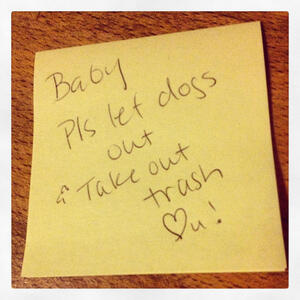 Baby
Pls let dogs
out
& Take out
trash
♡ u!